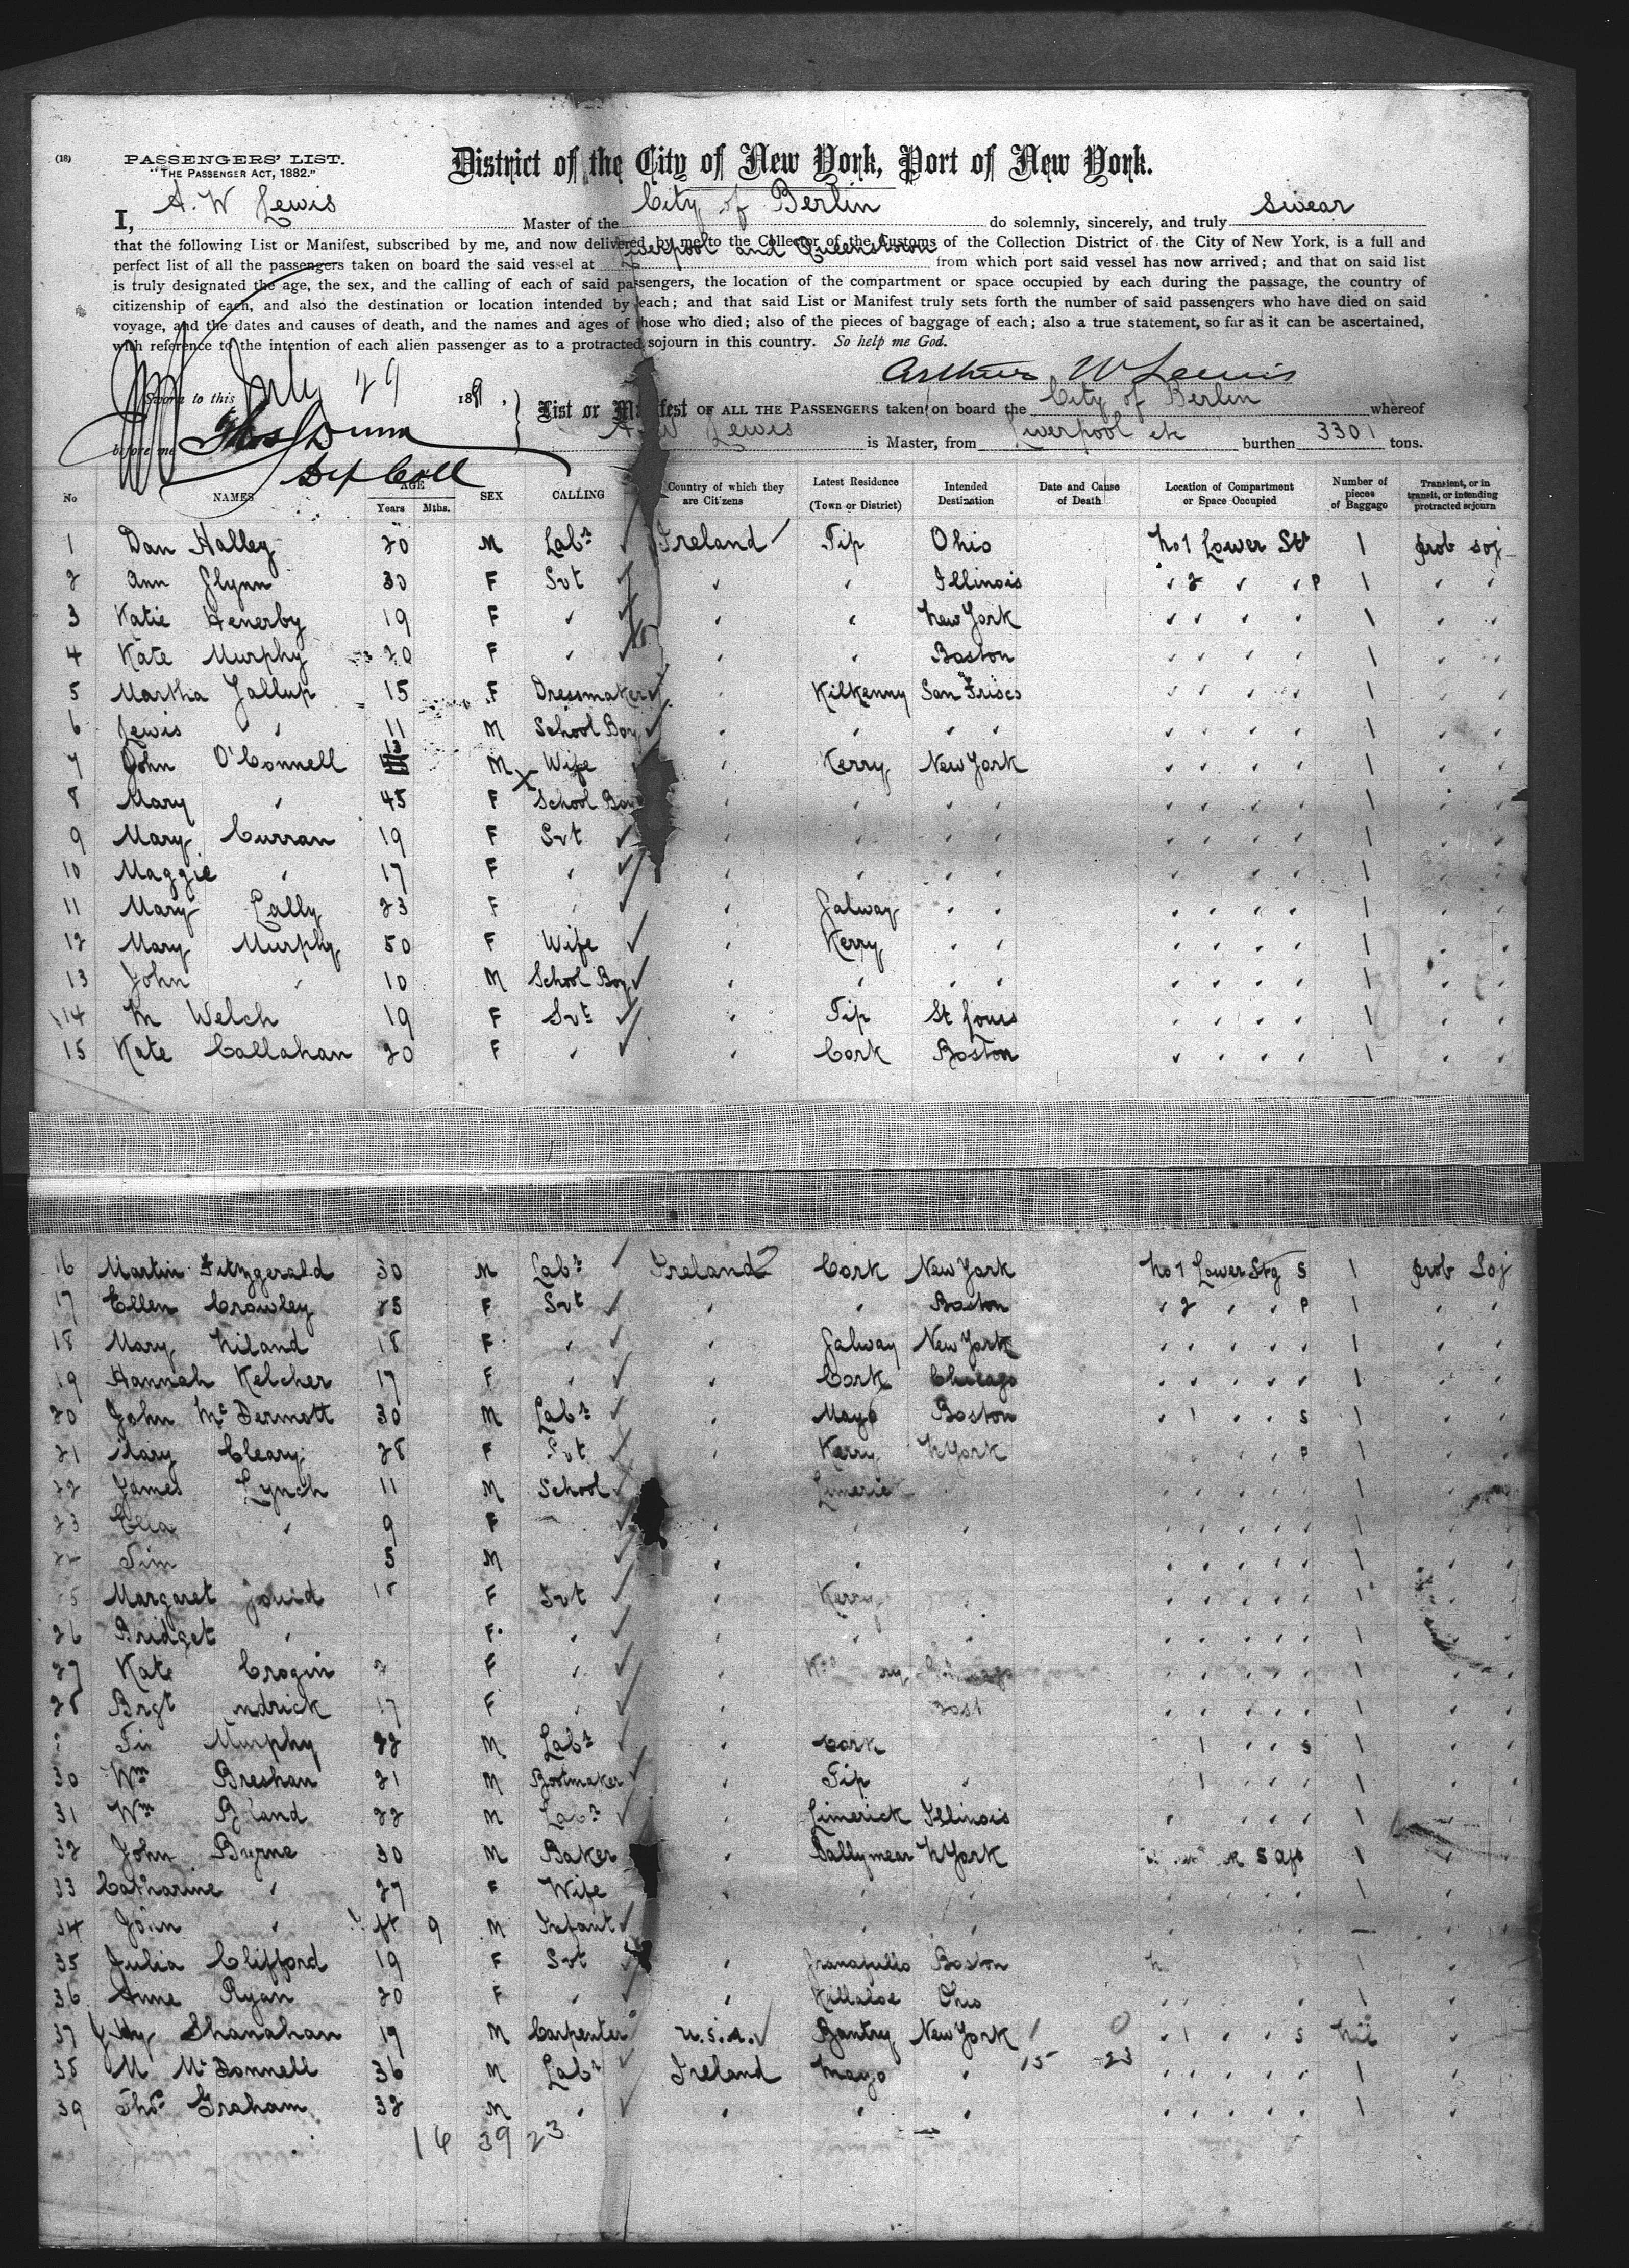 (18)
PASSENGERS' LIST.
"THE PASSENGER ACT, 1882."
District of the City of New York, Port of New York.
I, A. W Lewis Master of the City of Berlin do solemnly, sincerely, and truly swear
that the following List or Manifest, subscribed by me, and now delivered by me to the Collector of the Customs of the Collection District of the City of New York, is a full and
perfect list of all the passengers taken on board the said vessel at Liverpool and Queenstown from which port said vessel has now arrived; and that on said list
is truly designated the age, the sex, and the calling of each of said passengers, the location of the compartment or space occupied by each during the passage, the country of
citizenship of each, and also the destination or location intended by each; and that said List or Manifest truly sets forth the number of said passengers who have died on said
voyage, and the dates and causes of death, and the names and ages of those who died; also of the pieces of baggage of each; also a true statement, so far as it can be ascertained,
with reference to the intention of each alien passenger as to a protracted sojourn in this country. So help me God.
Arthur W Lewis
Sworn to this July 29 188
before me Thos Dunn
Dep Coll
List or Manifest OF ALL THE PASSENGERS taken on board the City of Berlin whereof
A. W Lewis is Master, from Liverpool etc burthen 3301 tons.
No NAMES AGE Years Mths. SEX CALLING Country of which they are Citizens Latest Residence (Town or District) Intended Destination Date and Cause of Death Location of Compartment or Space Occupied Number of pieces of Baggage Transient, or in transit, or intending protracted sojourn
1 Dan Halley 20 M Labr Ireland Tip Ohio No 1 Lower Stg 1 prob soj
2 Ann Glynn 30 F Svt " " Illinois " 2 " " P 1 " "
3 Katie Henerby 19 F " " " New York " " " " 1 " "
4 Kate Murphy 20 F " " " Boston " " " " 1 " "
5 Martha Gallup 15 F Dressmaker " Kilkenny San Frisco " " " " 1 " "
6 Lewis " 11 M School Boy " " " " " " " " 1 " "
7 John O'Connell 13 M Wife " Kerry New York " " " " 1 " "
8 Mary " 45 F School Boy " " " " " " " " 1 " "
9 Mary Curran 19 F Svt " " " " " " " " 1 " "
10 Maggie " 17 F " " " " " " " " " 1 " "
11 Mary Lally 23 F " " Galway " " " " " " 1 " "
12 Mary Murphy 50 F Wife " Kerry " " " " " " 1 " "
13 John " 10 M School Boy " " " " " " " " 1 " "
14 M Welch 19 F Svt " Tip St Louis " " " " 1 " "
15 Kate Callahan 20 F " " Cork Boston " " " " 1 " "
16 Martin Fitzgerald 30 M Labr Ireland Cork New York No 1 Lower Stg S 1 prob Soj
17 Ellen Crowley 25 F Svt " " Boston " 2 " " P 1 " "
18 Mary Niland 18 F " " Galway New York " " " " " 1 " "
19 Hannah Kelcher 17 F " " Cork Chicago " " " " " 1 " "
20 John McDermott 30 M Labr " Mayo Boston " 1 " " S 1 " "
21 Mary Cleary 28 F Svt " Kerry N York P 1 " "
22 James Lynch 11 M School Limerick " " " " " 1
23 " 9 F " " " " " " " " 1 "
Tim 5 M " " " " " " " 1 " "
Margaret F Svt Kerry " " " " " 1 "
26 Bridget " F " " " " " " " " " 1 " "
27 Kate Crogin F " " " " " " " 1 " "
28 Brgt ndrick 17 F " " " " " " " 1 " "
Murphy 22 M Labr Cork 1 " " S 1 " "
30 Wm Breshan 21 M Bootmaker " Tip " 1 " " " 1 " "
31 Wm 22 M Labr Limerick Illinois " " " " 1
32 John Byrne 30 M Baker " Ballymear N York S aft 1 "
33 Catharine " 27 F Wife " " " " " " " 1 "
34 John " 9 M Infant " " " " " " " — "
35 Julia Clifford 19 F Svt " Boston 1 "
36 Anne Ryan 20 F " " Killaloe Ohio " " " " 1 "
37 Shanahan 19 M Carpenter U.S.A. Bantry New York " 1 " " S Nil "
38 M McDonnell 36 M Labr Ireland Mayo " 15 23 " " " " " 1 "
39 Thos Graham 32 M " " " " " " " " " 1 "
16 39 23